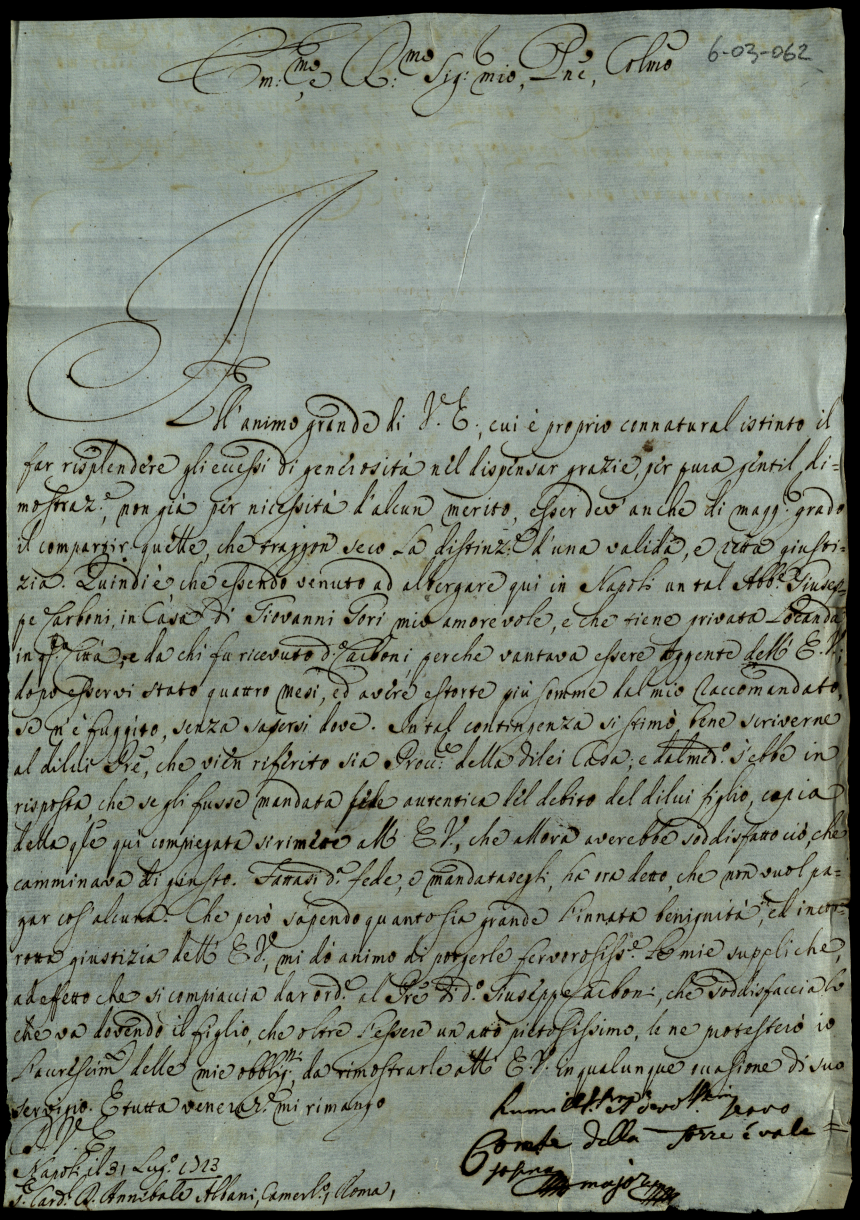 6-03-062
Em:mo, e R:mo Sig: mio, Pne, Colmo
All'animo grande di V. E., cui è proprio connatural istinto il
far risplendere gli eccessi di generosità nel dispensar grazie, per pura gentil di=
mostraz:e, non già per nicessità d'alcun merito, esser dev' anche di magg:r grado
il compartir quelle, che traggon seco la distinz:e d'una validà, e retta giusti=
zia. Quindi è che essendo venuto ad albergare qui in Napoli un tal Abb:e Giusep=
pe Carboni, in Casa di Giovanni Gori mio amorevole, e che tiene privata Locanda
in q:ta Città, e da chi fu ricevuto d:o Carboni perche vantava essere Aggente dell' E. V.;
dopo esservi stato quattro mesi, ed avere estorte più somme dal mio Raccomandato,
se n'è fuggito, senza sapersi dove. In tal contingenza si stimò bene scriverne
al dilui Pre, che vien riferito sia Proc:re della dilei Casa; e dal med:o s'ebbe in
risposta, che se gli fusse mandata fede autentica del debito del dilui figlio, copia
della qle qui compiegata si rimette all' E. V., che allora averebbe soddisfatto ciò, che
camminava di giusto. Fattasi d:a fede, e mandatasegli, ha ora detto, che non vuol pa=
gar cos' alcuna. Che però sapendo quanto sia grande l'innata benignità, ed incor=
rotta giustizia dell' E. V., mi dò animo di porgerle fervorosiss:e le mie suppliche,
ad effetto che si compiaccia dar ord:e al Pre di d:o Giuseppe Carboni, che soddisfaccia lo
che va dovendo il figlio, che oltre l'essere un atto pietosissimo, le ne protesterò io
l'accrescim:to delle mie obblig:ni, da rimostrarle all' E. V. in qualunque occasione di suo
servigio. E tutta veneraz:e mi rimango
D. V. E.
Napoli il 31 Lug:o 1723
S:r Card: D. Annibale Albani, Camerl:o, Roma,
Servo
Conte della Torre e Vale=
sasina
major